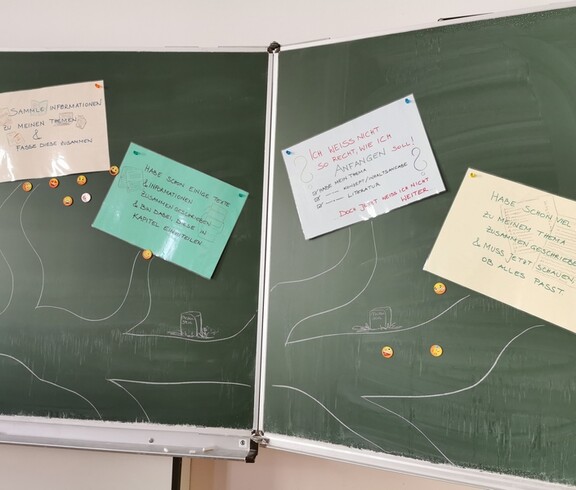 SAMMLE INFORMATIONEN
ZU MEINEN THEMEN
&
FASSE DIESE ZUSAMMEN
HABE SCHON EINIGE TEXTE
& INFORMATIONEN
ZUSAMMENGESCHRIEBEN
& BIN DABEI, DIESE IN
KAPITEL EINZUTEILEN
ICH WEISS NICHT
SO RECHT, WIE ICH
ANFANGEN SOLL!
HABE MEIN THEMA
KONZEPT/INHALTSANGABE
LITERATUR
DOCH JETZT WEISS ICH NICHT
WEITER
HABE SCHON VIEL
ZU MEINEM THEMA
ZUSAMMENGESCHRIEBEN
& MUSS JETZT SCHAUEN,
OB ALLES PASST